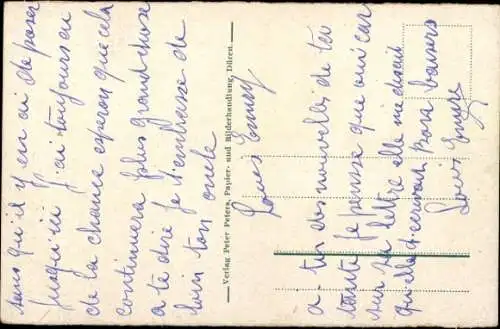 sans qu'il y en ai de poser
jusqu'ici j'ai toujours eu
de la chance esperon que cela
continuera plus grand chose
a te dire je t'embrasse de
loin ton oncle
Louis
Verlag Peter Peters, Papier- und Bilderhandlung, Düren.
a-tu des nouvelles de ta
tante je pense que oui car
sur sa lettre elle me disait
qu'elle Bons baisers
Louis